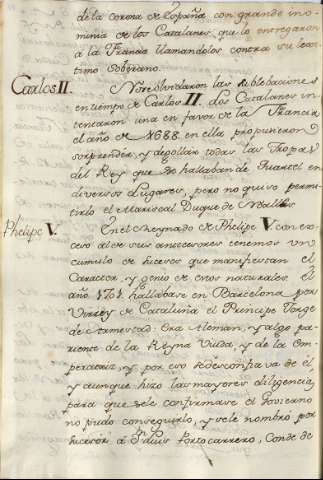 de la corona de España con grande ino-
minia de los Catalanes que lo entregaron
a la Francia llamandolos contra su leal
timo Soberano.
Carlos II. No se olvidaron las Rebeliones
en tiempo de Carlos II. dos Catalanes in
tentaron una en favor de la Francia
el año de 1688. en ella propusieron
sorprender, y degollar todas las Tropas
del Rey que se hallaban de Quartel en
diversos Lugares, pero no quiso permi-
tirlo el Mariscal Duque de Noailles
Phelipe V. En el Reynado de Phelipe V. con ex-
ceso al de sus antecesores tenemos un
cumulo de hechos que manifiestan el
Caracter, y genio de estos naturales. el
año 1701. hallabase en Barcelona por
Virrey de Cataluña el Principe Jorge
de Armestad. Era Aleman, y algo pa-
riente de la Reyna Viuda, y de la Em-
peratriz, y por eso se desconfiava de él,
y aunque hizo las mayores diligencias
para que se le confirmase el Govierno
no pudo conseguirlo, y se le nombró por
sucesor á Dn. Luis Portocarrero, Conde de